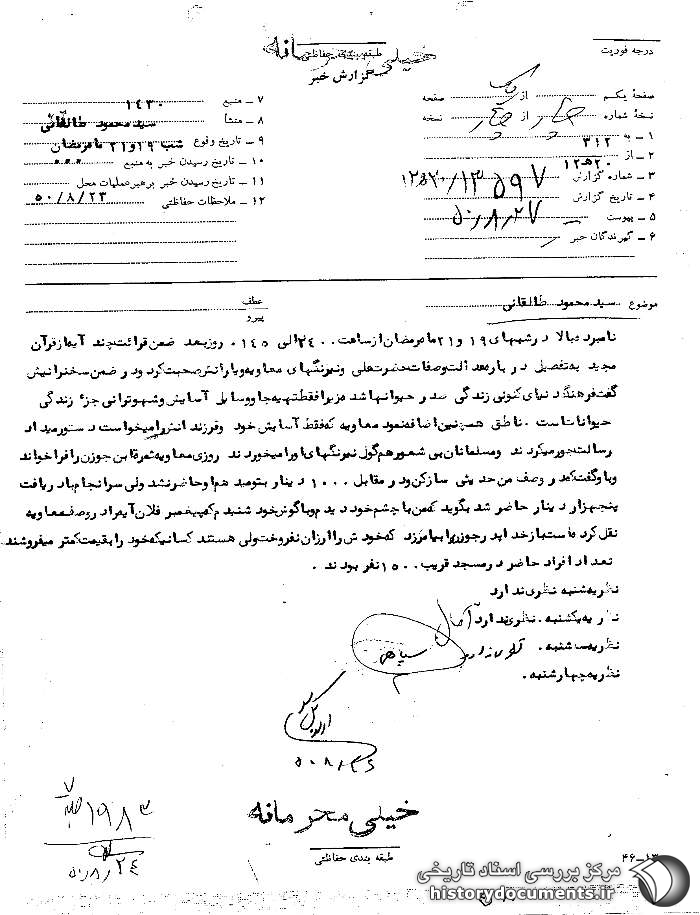 درجه فوریت
طبقه‌بندی حفاظتی
خیلی محرمانه
گزارش خبر
صفحهٔ یکم از یک صفحه
نسخهٔ شماره از نسخه
۱ ـ به ۳۱۲
۲ ـ از ۲۰ هـ ۱۲
۳ ـ شماره گزارش ۱۳۵۹۷ / ۲۰ هـ ۱۲
۴ ـ تاریخ گزارش ۵۰/۸/۲۷
۵ ـ پیوست
۶ ـ گیرندگان خبر
۷ ـ منبع ۱۴۳۰
۸ ـ منشأ سید محمود طالقانی
۹ ـ تاریخ وقوع شب ۱۹ و ۲۱ ماه رمضان
۱۰ ـ تاریخ رسیدن خبر به منبع ۰۰۰
۱۱ ـ تاریخ رسیدن خبر به رهبر عملیات محل
۱۲ ـ ملاحظات حفاظتی ۵۰/۸/۲۳
موضوع سید محمود طالقانی
عطف
پیرو
نامبرده بالا در شبهای ۱۹ و ۲۱ ماه رمضان از ساعت ۲۴۰۰ الی ۰۱۴۵ روز بعد ضمن قرائت چند آیه از قرآن
مجید به تفصیل در باره عدالت و صفات حضرت علی و نیرنگهای معاویه و یارانش صحبت کرد و در ضمن سخنرانیش
گفت فرهنگ دنیای کنونی زندگی صد در حیوانها شد زیرا فقط تهیه جا و وسایل آسایش و شهوترانی جزء زندگی
حیوانات است . ناطق همچنین اضافه نمود معاویه که فقط آسایش خود و فرزندانش را میخواست دستور میداد
رسالت جور میکردند و مسلمانان بی شعور هم گول نیرنگهای او را میخوردند روزی معاویه ثمرة ابن جوزن را فراخواند
و باو گفت که در وصف من حدیثی ساز کن و در مقابل ۱۰۰۰ دینار بتو میدهم او حاضر نشد ولی سرانجام با دریافت
پنجهزار دینار حاضر شد بگوید که من با چشم خود دیدم و با گوش خود شنیدم که پیغمبر فلان آیه را در وصف معاویه
نقل کرده است باز خدا پدر جوزن را بیامرزد که خودش را ارزان نفروخت ولی هستند کسانیکه خود را بقیمت کمتر میفروشند .
تعداد افراد حاضر در مسجد قریب ۱۵۰۰ نفر بودند .
نظریه شنبه نظری ندارد
نظریه یکشنبه . نظری ندارد آمال
نظریه سه شنبه . نظری ندارد سپاهی
نظریه چهارشنبه .
۵۰/۸/۲۶
خیلی محرمانه
طبقه بندی حفاظتی
۱۹۸۳
۵۰/۸/۲۴
۴۶ـ۱۳
مرکز بررسی اسناد تاریخی
historydocuments.ir